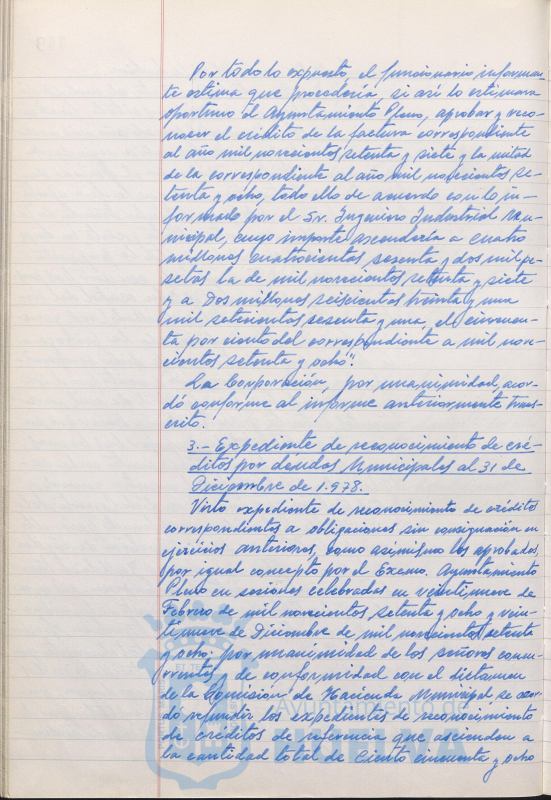 Por todo lo expuesto, el funcionario informan-
te estima que procedería, si así lo estimara
oportuno el Ayuntamiento Pleno, aprobar y reco-
nocer el crédito de la factura correspondiente
al año mil novecientos setenta y siete y la mitad
de la correspondiente al año mil novecientos se-
tenta y ocho, todo ello de acuerdo con lo in-
formado por el Sr. Ingeniero Industrial Mu-
nicipal, cuyo importe ascendería a cuatro
millones cuatrocientas sesenta y dos mil pe-
setas la de mil novecientos setenta y siete
y a Dos millones seiscientas treinta y una
mil setecientas sesenta y una, el cincuen-
ta por ciento del correspondiente a mil nove-
cientos setenta y ocho".
La Corporación, por unanimidad, acor-
dó conforme al informe anteriormente trans-
crito.
3.- Expediente de reconocimiento de cré-
ditos por deudas Municipales al 31 de
Diciembre de 1.978.
Visto expediente de reconocimiento de créditos
correspondientes a obligaciones sin consignación en
ejercicios anteriores, como asimismo los aprobados,
por igual concepto por el Excmo. Ayuntamiento
Pleno en sesiones celebradas en veintinueve de
Febrero de mil novecientos setenta y ocho y vein-
tinueve de Diciembre de mil novecientos setenta
y ocho; por unanimidad de los señores concu-
rrentes y de conformidad con el dictamen
de la Comisión de Hacienda Municipal se acor-
dó refundir los expedientes de reconocimiento
de créditos de referencia que ascienden a
la cantidad total de Ciento cincuenta y ocho
Ayuntamiento de
HUELVA